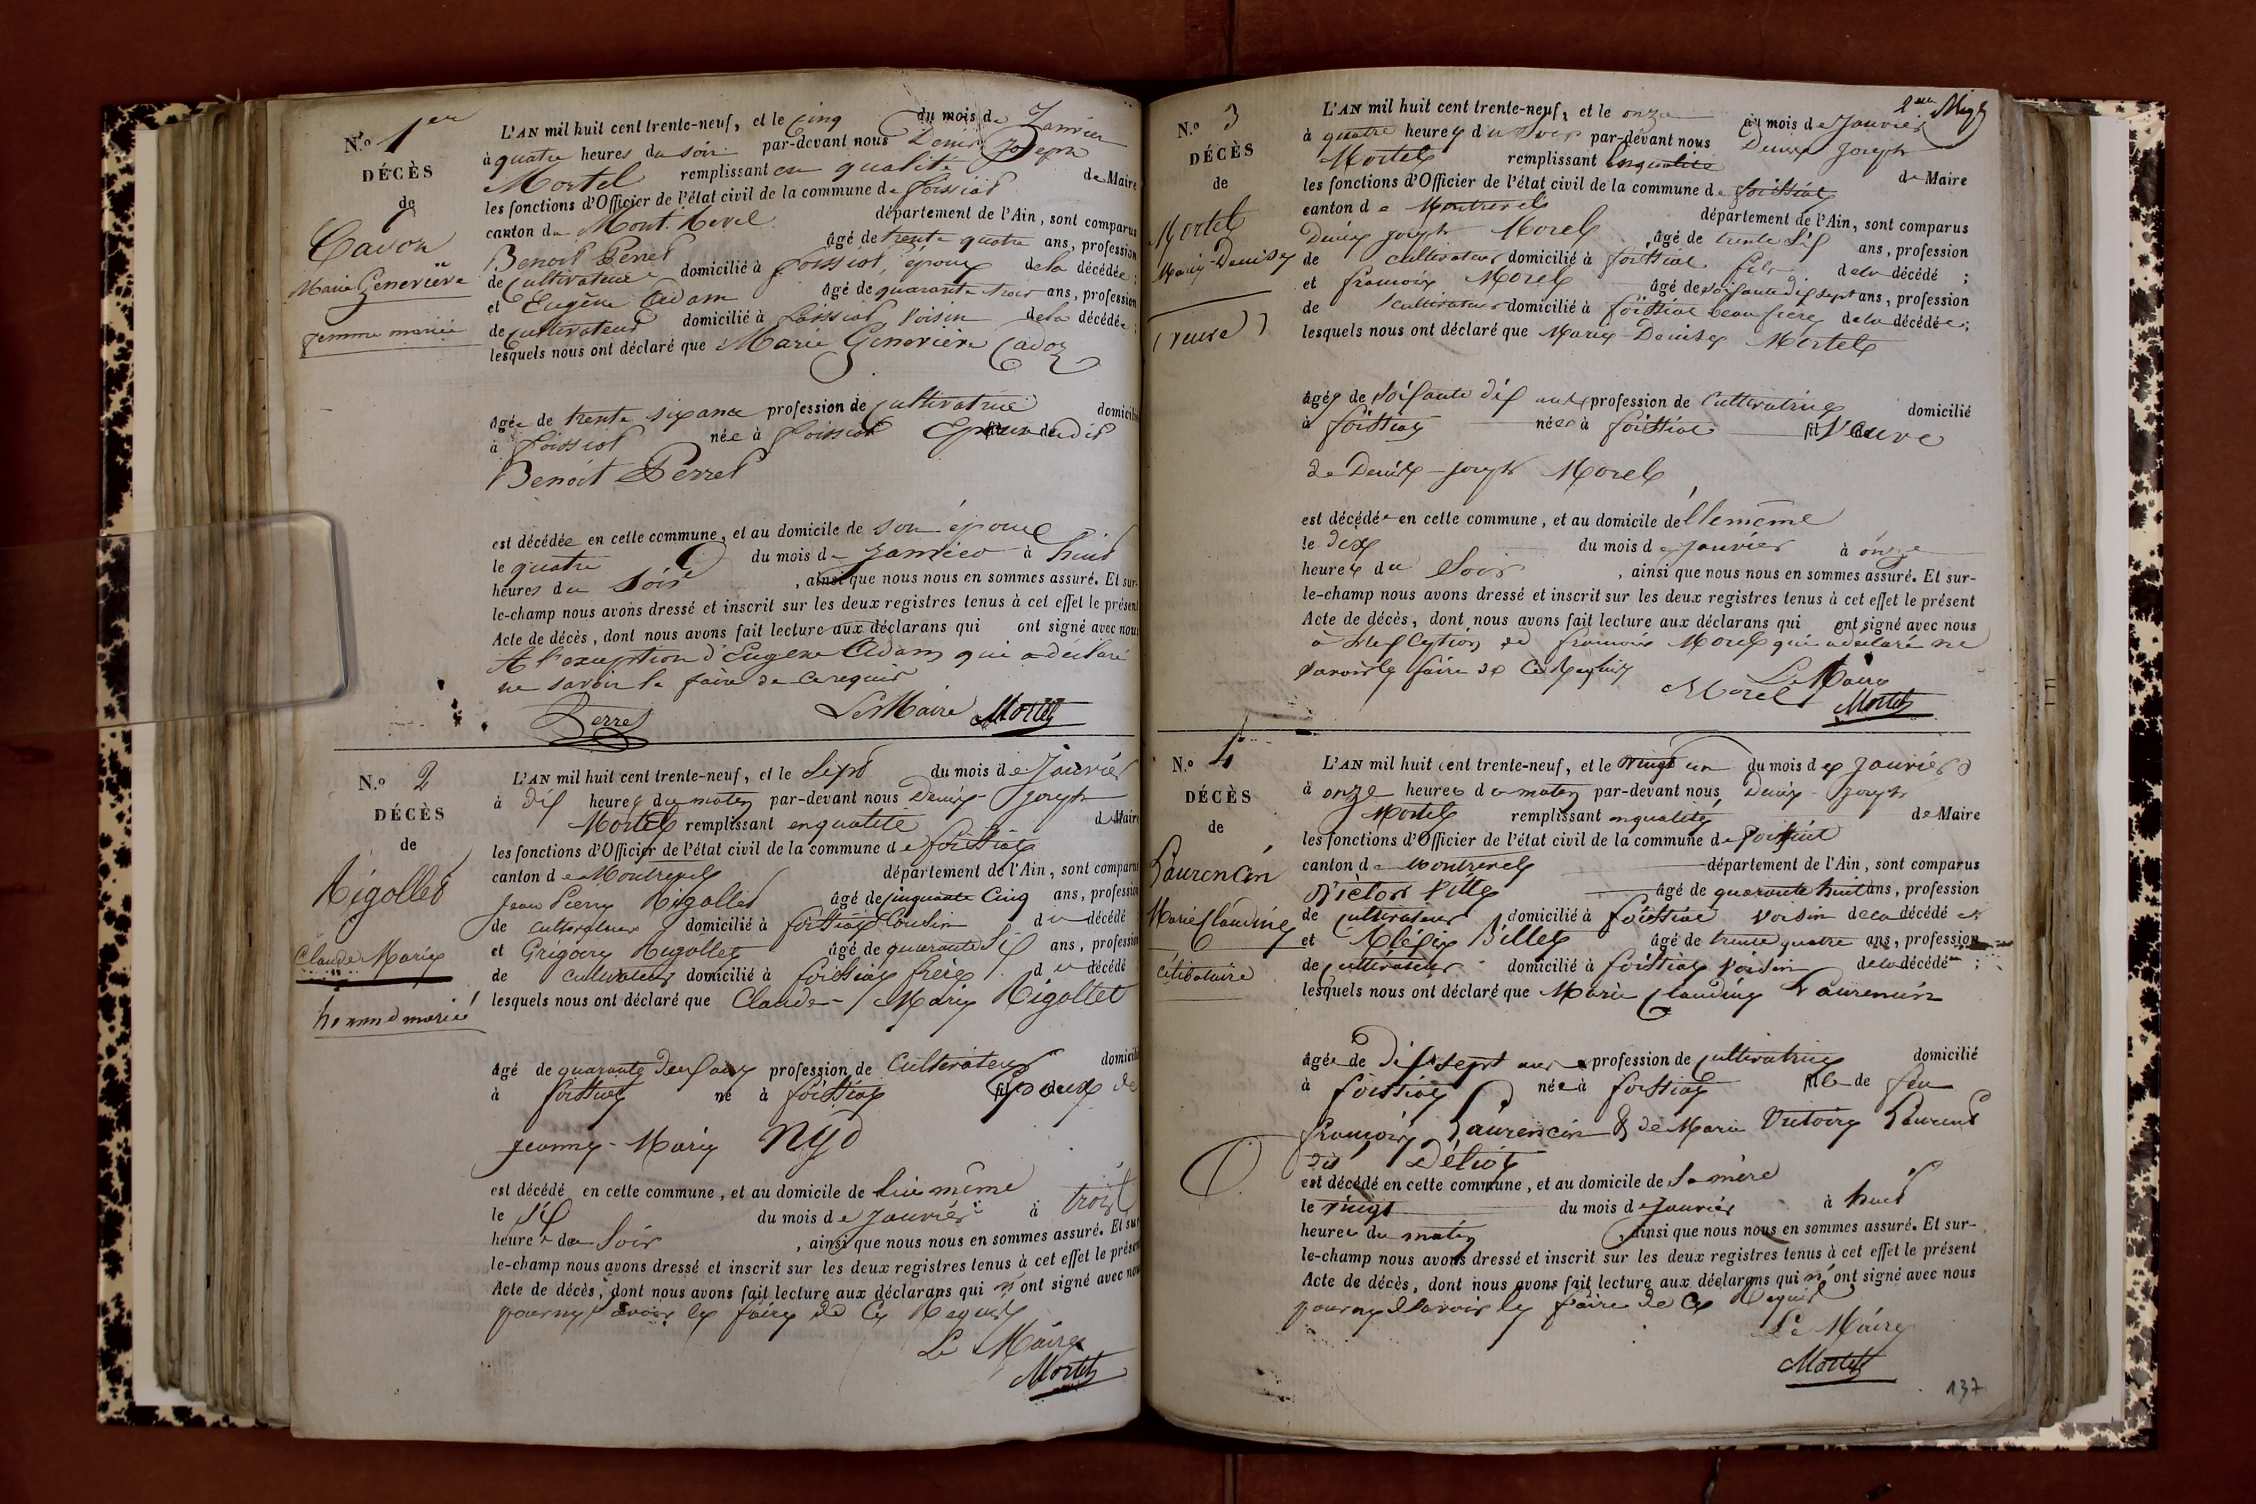 N.o 1er
DÉCÈS
de
Cadon
Marie Geneviève
femme mariée
L'AN mil huit cent trente-neuf, et le cinq du mois de Janvier
à quatre heures du soir par-devant nous Denis Joseph
Mortel remplissant en qualité de Maire
les fonctions d'Officier de l'état civil de la commune de foissiat
canton de Mont. Revel département de l'Ain, sont comparus
Benoit Perret âgé de trente quatre ans, profession
de cultivateur domicilié à foissiat, époux de la décédée ;
et Eugène Adam âgé de quarante trois ans, profession
de cultivateur domicilié à foissiat voisin de la décédée ;
lesquels nous ont déclaré que Marie Geneviève Cadon
âgée de trente six ans profession de cultivatrice domicilié
à foissiat née à foissiat Epouse dudit
Benoit Perret
est décédée en cette commune, et au domicile de son époux
le quatre du mois de janvier à huit
heures du soir , ainsi que nous nous en sommes assuré. Et sur-
le-champ nous avons dressé et inscrit sur les deux registres tenus à cet effet le présent
Acte de décès, dont nous avons fait lecture aux déclarans qui ont signé avec nous
A l'exception d'Eugène Adam que a déclaré
ne savoir le faire de ce requis
Perret Le Maire Mortel
N.o 2
DÉCÈS
de
Rigollet
Claude Marie
homme marié
L'AN mil huit cent trente-neuf, et le sept du mois de Janvier
à dix heures du matin par-devant nous Denis Joseph
Mortel remplissant en qualité de Maire
les fonctions d'Officier de l'état civil de la commune de foissiat
canton de Montrevel département de l'Ain, sont comparus
Jean Pierre Rigollet âgé de cinquante cinq ans, profession
de cultivateur domicilié à foissiat Cousin du décédé
et Grégoire Rigollet âgé de quarante six ans, profession
de cultivateur domicilié à foissiat frère du décédé
lesquels nous ont déclaré que Claude - Marie Rigollet
âgé de quarante deux ans profession de Cultivateur domicilié
à foissiat né à foissiat Epoux de
Jeanne - Marie Nyd
est décédé en cette commune, et au domicile de lui même
le six du mois de Janvier à trois
heures du soir , ainsi que nous nous en sommes assuré. Et sur
le-champ nous avons dressé et inscrit sur les deux registres tenus à cet effet le présent
Acte de décès, dont nous avons fait lecture aux déclarans qui n'ont signé avec nous
pour ne savoir le faire de ce Requis
Le Maire
Mortel
N.o 3
DÉCÈS
de
Mortel
Marie-Denise
(veuve)
L'AN mil huit cent trente-neuf, et le onze du mois de Janvier
à quatre heures du soir par-devant nous Denis Joseph
Mortel remplissant en qualité de Maire
les fonctions d'Officier de l'état civil de la commune de foissiat
canton de Montrevel département de l'Ain, sont comparus
Denis Joseph Morel âgé de trente six ans, profession
de cultivateur domicilié à foissiat fils de la décédé ;
et françois Morel âgé de soixante dix sept ans, profession
de cultivateur domicilié à foissiat beau frère de la décédée ;
lesquels nous ont déclaré que Marie - Denise Mortel
âgée de soixante dix ans profession de Cultivatrice domicilié
à foissiat née à foissiat veuve
de Denis - Joseph Morel
est décédée en cette commune, et au domicile d'ellemême
le dix du mois de Janvier à onze
heures du soir , ainsi que nous nous en sommes assuré. Et sur-
le-champ nous avons dressé et inscrit sur les deux registres tenus à cet effet le présent
Acte de décès, dont nous avons fait lecture aux déclarans qui ont signé avec nous
à l'exception de françois Morel qui a déclaré ne
savoir le faire de ce Requis
Le Maire
Morel Mortel
N.o 4
DÉCÈS
de
Laurencin
Marie Claudine
célibataire
L'AN mil huit cent trente-neuf, et le vingt un du mois de Janvier
à onze heures du matin par-devant nous Denis Joseph
Mortel remplissant en qualité de Maire
les fonctions d'Officier de l'état civil de la commune de foissiat
canton de Montrevel département de l'Ain, sont comparus
Victor Pitte âgé de quarante huit ans, profession
de cultivateur domicilié à foissiat voisin de la décédé
et Alexis Billet âgé de trente quatre ans, profession
de cultivateur domicilié à foissiat voisin de la décédée ;
lesquels nous ont déclaré que Marie Claudine Laurencin
âgée de dix sept ans profession de cultivatrice domicilié
à foissiat née à foissiat fille de feu
françois Laurencin & de Marie Victoire Laurent
dit
est décédé en cette commune, et au domicile de sa mère
le vingt du mois de Janvier à huit
heures du matin , ainsi que nous nous en sommes assuré. Et sur-
le-champ nous avons dressé et inscrit sur les deux registres tenus à cet effet le présent
Acte de décès, dont nous avons fait lecture aux déclarans qui n'ont signé avec nous
pour ne savoir le faire de ce Requis
Le Maire
Mortel
137